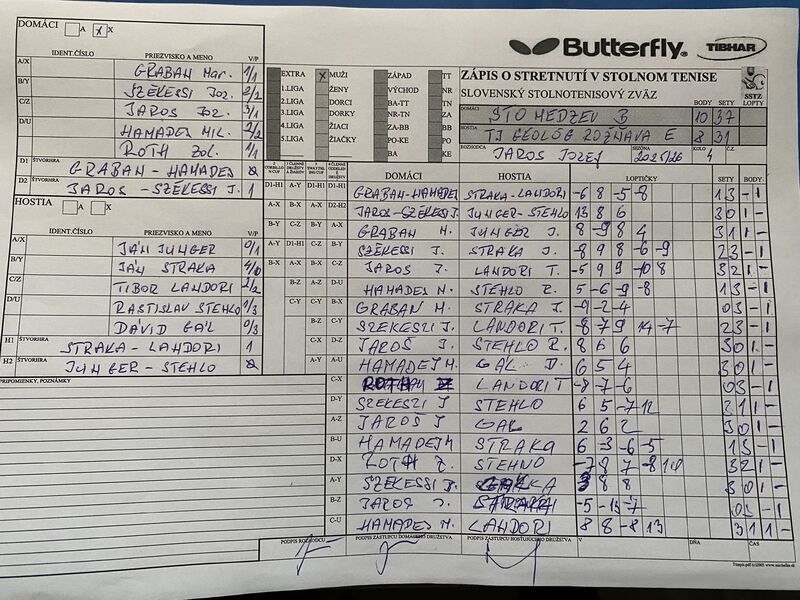 DOMÁCI A X X
IDENT.ČÍSLO PRIEZVISKO A MENO V/P
A/X GRABAN Mar. 1/1
B/Y SZÉKESSI Joz. 2/2
C/Z JAROS Joz. 3/1
D/U HAMADEJ MIL. 2/2
ROTH Zol. 1/1
D1 ŠTVORHRA GRABAN - HAMADEJ 0
D2 ŠTVORHRA JAROS - SZÉKESSI J. 1
HOSTIA A X
IDENT.ČÍSLO PRIEZVISKO A MENO V/P
A/X JÁN JUNGER 0/1
B/Y JÁN STRAKA 4/0
C/Z TIBOR LANDORI 2/2
D/U RASTISLAV STEHLO 1/3
DÁVID GAL 0/3
H1 ŠTVORHRA STRAKA - LANDORI 1
H2 ŠTVORHRA JUNGER - STEHLO 0
PRIPOMIENKY, POZNÁMKY
Butterfly TIBHAR
ZÁPIS O STRETNUTÍ V STOLNOM TENISE
SLOVENSKÝ STOLNOTENISOVÝ ZVÄZ SSTZ
EXTRA X MUŽI ZÁPAD TT
1.LIGA ŽENY VÝCHOD NR
2.LIGA DORCI BA-TT TN
3.LIGA DORKY NR-TN ZA
4.LIGA ŽIACI ZA-BB BB
5.LIGA ŽIAČKY PO-KE PO
BA KE
BODY SETY LOPTY
DOMÁCI ŠTO MEDZEV B 10 37
HOSTIA TJ GEOLÓG ROŽŇAVA E 8 31
ROZHODCA JAROS JOZEF SEZÓNA 2025/26 KOLO 4 Č.Z.
DOMÁCI HOSTIA LOPTIČKY SETY BODY
D1-H1 A-Y D1-H1 D1-H1 GRABAN-HAMADEJ STRAKA-LANDORI -6 8 -5 -8 1 3 - 1
A-X B-X A-X D2-H2 JAROS-SZÉKESSI J. JUNGER-STEHLO 13 8 6 3 0 1 -
B-Y C-Z B-Y A-X GRABAN M. JUNGER J. 8 -9 8 4 3 1 1 -
A-Y D1-H1 C-Z B-Y SZÉKESSI J. STRAKA J. -8 9 8 -6 -9 2 3 - 1
B-X A-X B-X C-Z JAROS J. LANDORI T. -5 9 9 -10 8 3 2 1 -
B-Z A-Z D-U HAMADEJ M. STEHLO R. 5 -6 -9 -8 1 3 - 1
C-Y C-Y B-X GRABAN M. STRAKA J. -9 -2 -4 0 3 - 1
B-Z C-Y SZEKESZI J. LANDORI T. -8 7 9 -14 -7 2 3 - 1
C-X D-Z JAROŠ J. STEHLO R. 8 6 6 3 0 1 -
A-Y A-U HAMADEJ M. GAL D. 6 5 4 3 0 1 -
C-X ROTH Z LANDORI T -8 -7 -6 0 3 - 1
D-Y SZEKESZI J STEHLO 6 5 -7 12
A-Z JAROŠ J GAL 2 6 2 3 0 1 -
B-U HAMADEJ M STRAKA 6 -3 -6 -5 1 3 - 1
D-X ROTH Z. STEHNO -7 8 7 -8 10 3 2 1 -
A-Y SZÉKESSI J. 3 8 8 3 0 1 -
B-Z JAROS J. STRAKA -5 -13 -7 0 3 - 1
C-U HAMADEJ M. LANDORI 8 8 -8 13 3 1 1 -
PODPIS ROZHODCU PODPIS ZÁSTUPCU DOMÁCEHO DRUŽSTVA PODPIS ZÁSTUPCU HOSŤUJÚCEHO DRUŽSTVA V DŇA ČAS